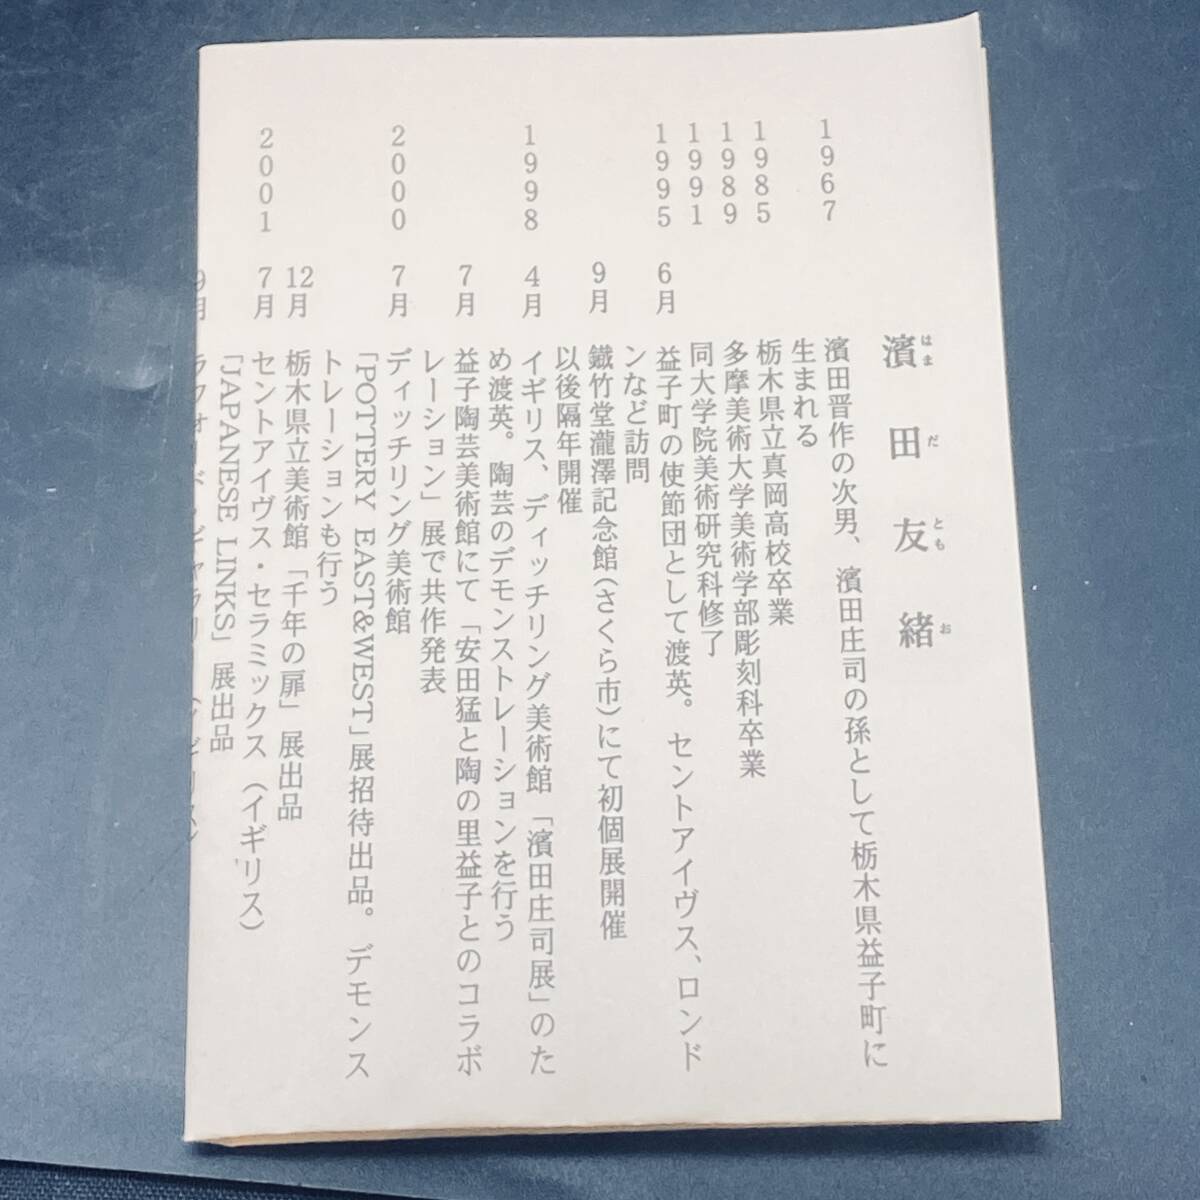 濱田友緒
はまだともお
1967 濱田晋作の次男、濱田庄司の孫として栃木県益子町に
生まれる
1985 栃木県立真岡高校卒業
1989 多摩美術大学美術学部彫刻科卒業
1991 同大学院美術研究科修了
1995 6月 益子町の使節団として渡英。セントアイヴス、ロンド
ンなど訪問
9月 鐵竹堂瀧澤記念館(さくら市)にて初個展開催
以後隔年開催
1998 4月 イギリス、ディッチリング美術館「濱田庄司展」のた
め渡英。陶芸のデモンストレーションを行う
7月 益子陶芸美術館にて「安田猛と陶の里益子とのコラボ
レーション」展で共作発表
2000 7月 ディッチリング美術館
「POTTERY EAST&WEST」展招待出品。デモンス
トレーションも行う
12月 栃木県立美術館「千年の扉」展出品
2001 7月 セントアイヴス・セラミックス(イギリス)
「JAPANESE LINKS」展出品
9月